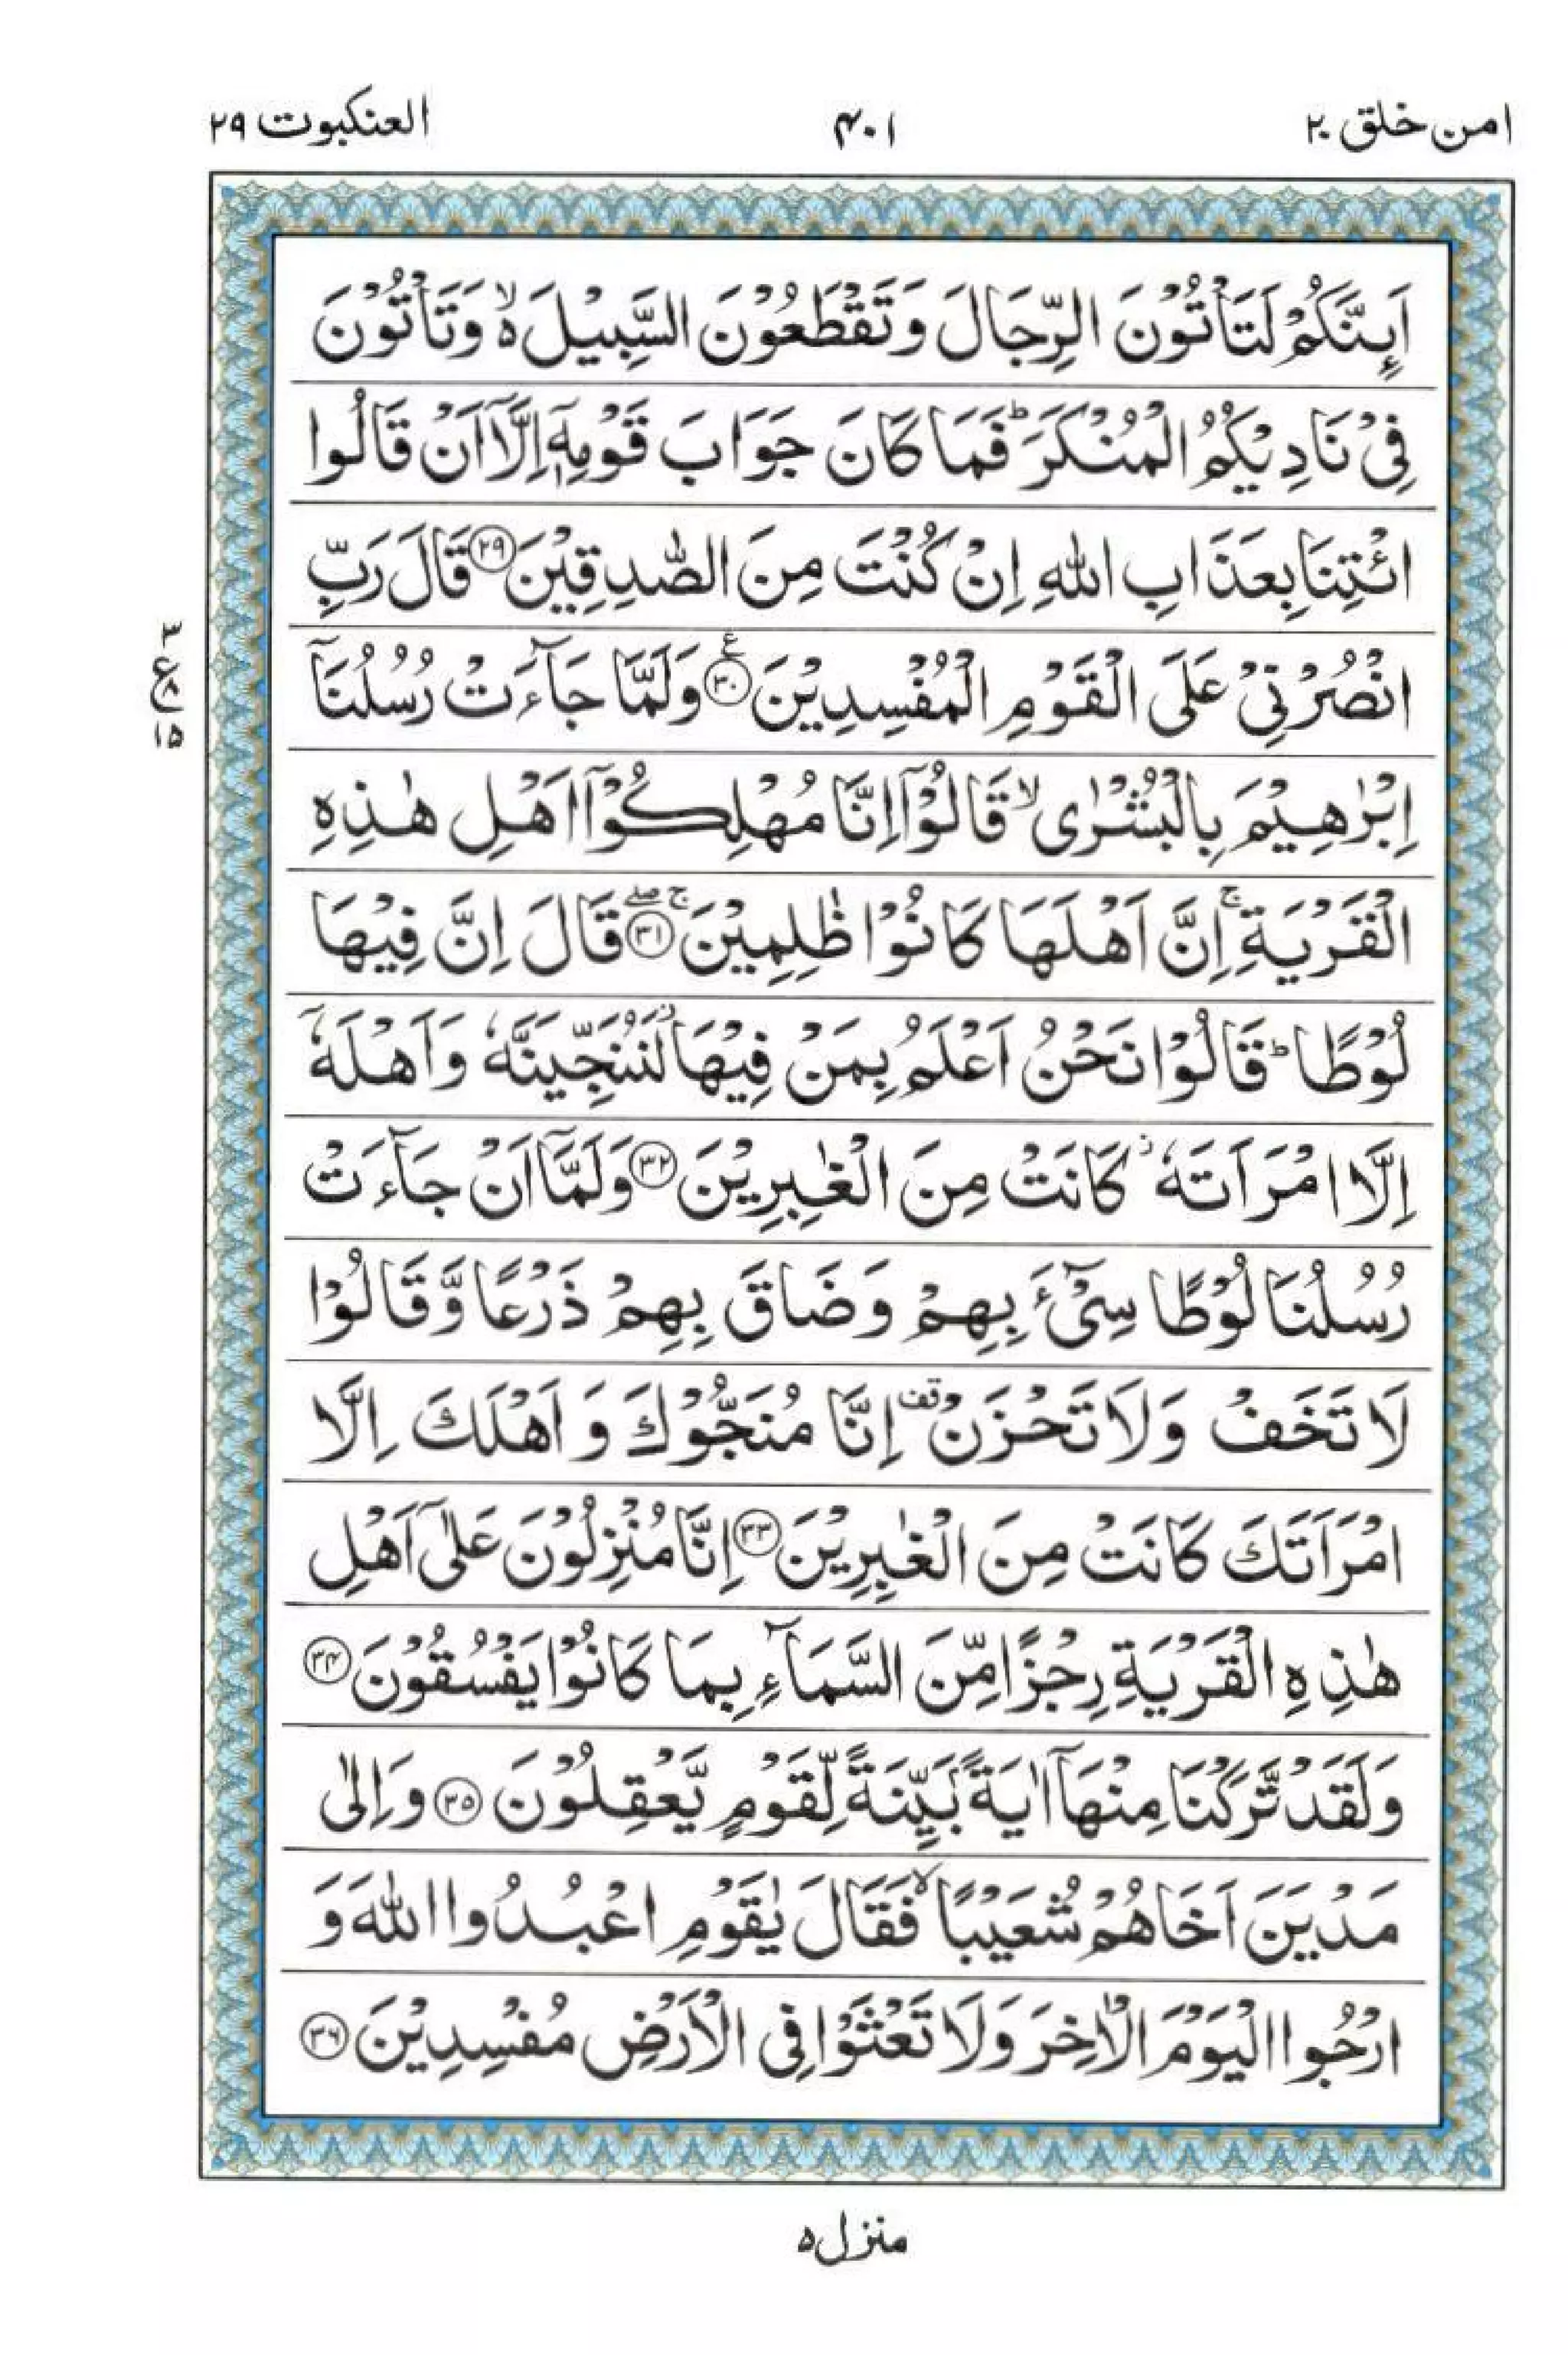 امن خلق ٢٠
٤٠١
العنكبوت ٢٩
اَئِنَّكُمْ لَتَاْتُوْنَ الرِّجَالَ وَتَقْطَعُوْنَ السَّبِيْلَ ۙ۬ وَتَاْتُوْنَ
فِيْ نَادِيْكُمُ الْمُنْكَرَ ؕ فَمَا كَانَ جَوَابَ قَوْمِهٖۤ اِلَّاۤ اَنْ قَالُوا
ائْتِنَا بِعَذَابِ اللّٰهِ اِنْ كُنْتَ مِنَ الصّٰدِقِيْنَ ﴿٢٩﴾ قَالَ رَبِّ
انْصُرْنِيْ عَلَى الْقَوْمِ الْمُفْسِدِيْنَ ﴿٣٠﴾ ع وَلَمَّا جَآءَتْ رُسُلُنَاۤ
٣
ع ٨
١٥
اِبْرٰهِيْمَ بِالْبُشْرٰى ۙ قَالُوْۤا اِنَّا مُهْلِكُوْۤا اَهْلِ هٰذِهِ
الْقَرْيَةِ ۚ اِنَّ اَهْلَهَا كَانُوْا ظٰلِمِيْنَ ۚ ﴿٣١﴾ ۖ قَالَ اِنَّ فِيْهَا
لُوْطًا ؕ قَالُوْا نَحْنُ اَعْلَمُ بِمَنْ فِيْهَا ز لَنُنَجِّيَنَّهٗ وَاَهْلَهٗۤ
اِلَّا امْرَاَتَهٗ ز كَانَتْ مِنَ الْغٰبِرِيْنَ ﴿٣٢﴾ وَلَمَّاۤ اَنْ جَآءَتْ
رُسُلُنَا لُوْطًا سِيْٓءَ بِهِمْ وَضَاقَ بِهِمْ ذَرْعًا وَّقَالُوْا
لَا تَخَفْ وَلَا تَحْزَنْ قف اِنَّا مُنَجُّوْكَ وَاَهْلَكَ اِلَّا
امْرَاَتَكَ كَانَتْ مِنَ الْغٰبِرِيْنَ ﴿٣٣﴾ اِنَّا مُنْزِلُوْنَ عَلٰۤى اَهْلِ
هٰذِهِ الْقَرْيَةِ رِجْزًا مِّنَ السَّمَآءِ بِمَا كَانُوْا يَفْسُقُوْنَ ﴿٣٤﴾
وَلَقَدْ تَّرَكْنَا مِنْهَاۤ اٰيَةًۢ بَيِّنَةً لِّقَوْمٍ يَّعْقِلُوْنَ ﴿٣٥﴾ وَاِلٰى
مَدْيَنَ اَخَاهُمْ شُعَيْبًا ۙ فَقَالَ يٰقَوْمِ اعْبُدُوا اللّٰهَ وَ
ارْجُوا الْيَوْمَ الْاٰخِرَ وَلَا تَعْثَوْا فِي الْاَرْضِ مُفْسِدِيْنَ ﴿٣٦﴾
منزل ٥